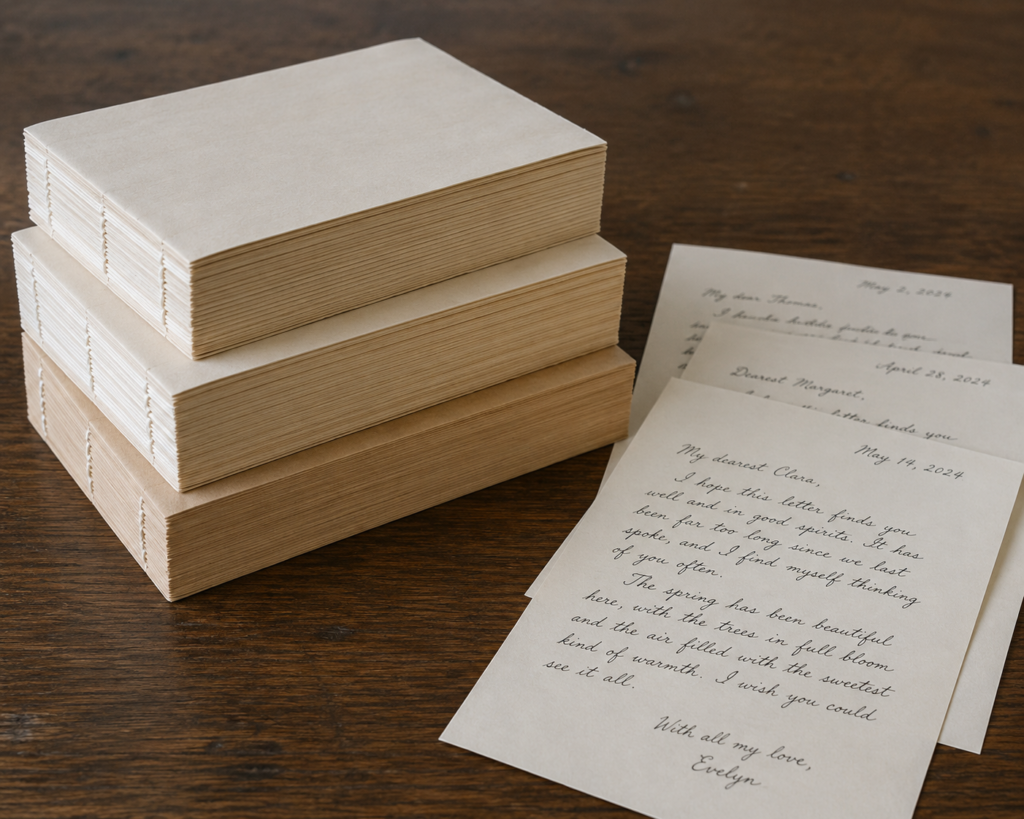 May 2, 2024
My dear Thomas,
April 28, 2024
Dearest Margaret,
letter finds you
May 14, 2024
My dearest Clara,
I hope this letter finds you
well and in good spirits. It has
been far too long since we last
spoke, and I find myself thinking
of you often.
The spring has been beautiful
here, with the trees in full bloom
and the air filled with the sweetest
kind of warmth. I wish you could
see it all.
With all my love,
Evelyn